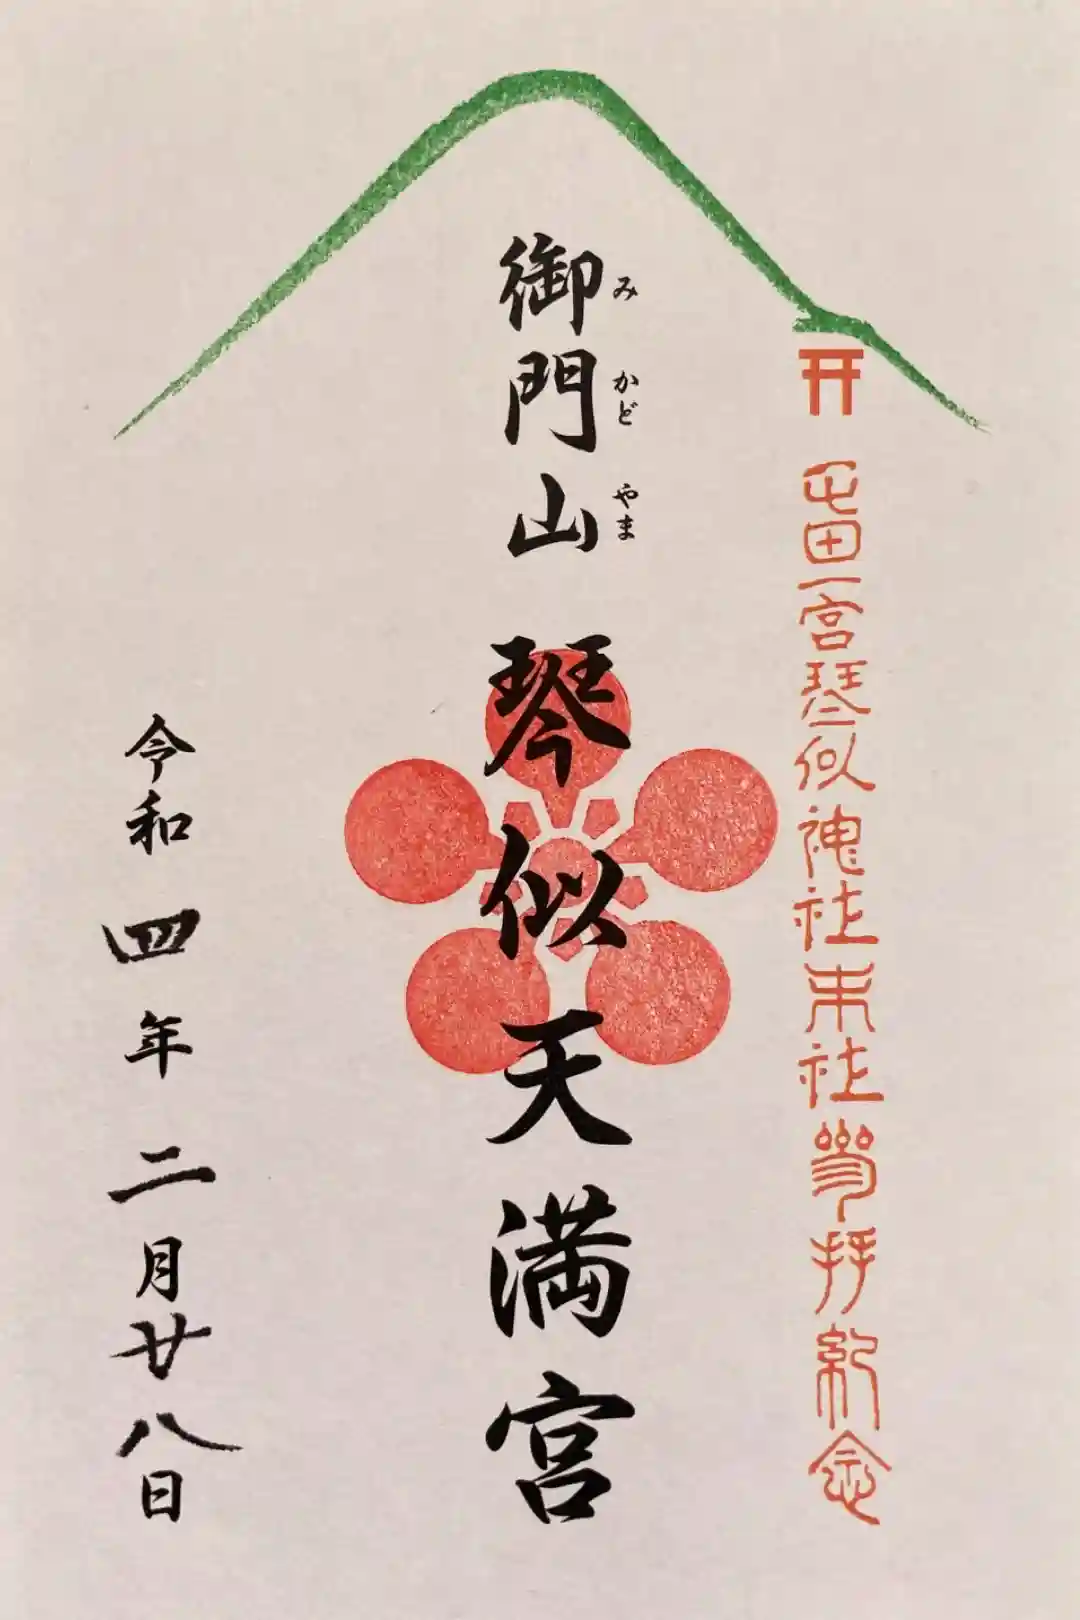 屯田一宮琴似神社末社参拝紀念
みかどやま
御門山 琴似天満宮
令和四年二月廿八日